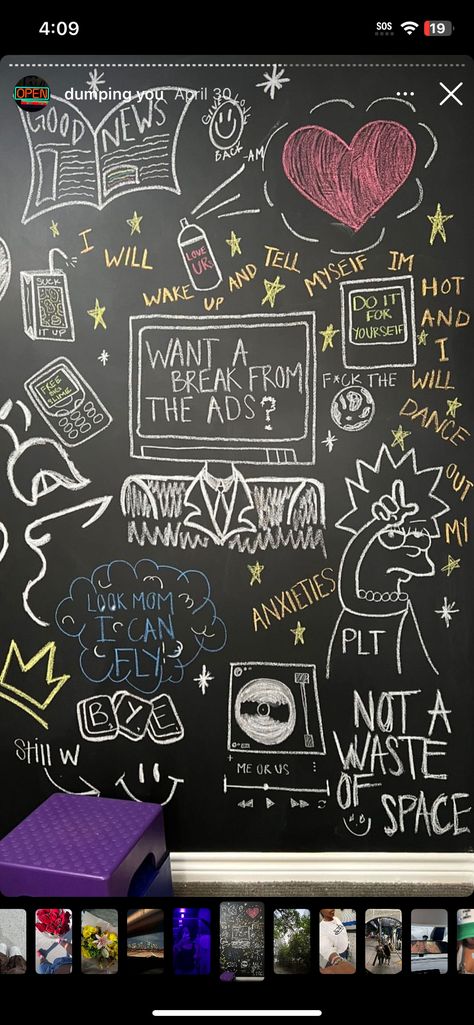 4:09
SOS
19
OPEN
dumping you April 30
GOOD NEWS
BACK
-AM
I WILL
WAKE UP AND TELL MYSELF IM HOT AND I WILL DANCE OUT MI
ANXIETIES
LOVE
URS
SUCK
IT UP
DO IT
FOR
YOURSELF
FREE
BIG
SLIME
WANT A
BREAK FROM
THE ADS?
F*CK THE
LOOK MOM
I CAN
FLY!
PLT
BYE
Still W
ME OR US
NOT A
WASTE
OF
SPACE